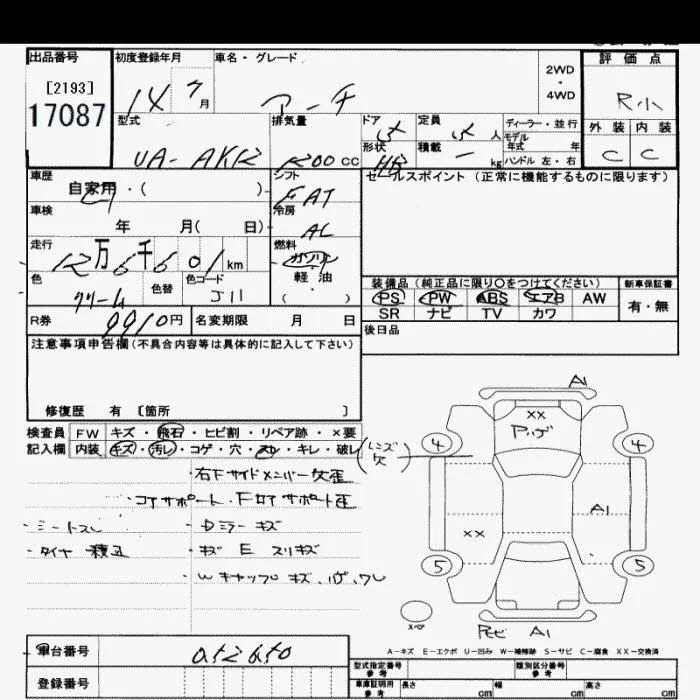 出品番号 初度登録年月 車名・グレード 評価点
[2193] 2WD
・
4WD
17087 14 7月 マーチ R小
型式 排気量 ドア 定員 人 ディーラー・並行 外装 内装
モデル
年式 年
UA-AK12 1200cc 形状 HB 積載 ー kg ハンドル 左・右 C C
車歴 シフト セールスポイント(正常に機能するものに限ります)
自家用・( ) FAT
車検 冷房
年 月( 日) AC
走行 燃料
12万6千601km ガソリン
色 色替 色コード 軽・油 装備品(純正品に限り○をつけてください) 新車保証書
クリーム J11 ( ) PS PW ABS エアB AW 有・無
SR ナビ TV カワ
R券 9910円 名変期限 月 日 後日品
注意事項申告欄(不具合内容等は具体的に記入して下さい)
修復歴 有 [箇所 ]
検査員 FW キズ・飛石・ヒビ割・リペア跡・×要
記入欄 内装 キズ・汚レ・コゲ・穴・スレ・キレ・破レ
(レンズ欠)
A1
XX
Pハゲ
4 4
A1
XX
5 5
スペア
A1
・右Fサイドメンバー欠歪
・コアサポート・Fクロスサポート歪
・シートスレ ・Dミラーキズ
・タイヤ積込 ・キズ E スリキズ
・Wキャップ キズ、ハゲ、ワレ
A-キズ E-エクボ U-凹み W-補修跡 S-サビ C-腐食 XX-交換済
車台番号 052650
登録番号
型式指定番号 参考 類別区分番号 参考
車庫証明用 参考 長さ cm 幅 cm 高さ cm